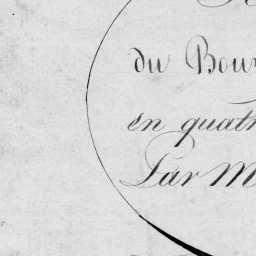 du Bour
en quatr
Par M